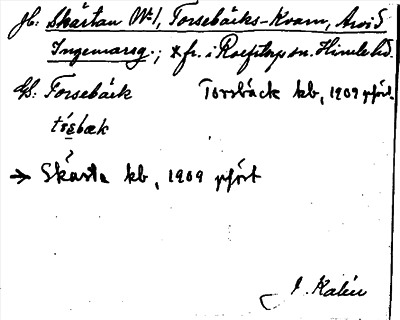 jb. Skärtan No 1, Torsebäcks-Kvarn, Arvid
Ingemarsg.; * fr. i Rolfstorps sn. Himle hd.
Ls: Forsebäck Torsbäck kb, 1909 pfört.
→ Skärta kb, 1909 pfört
J. Kalén